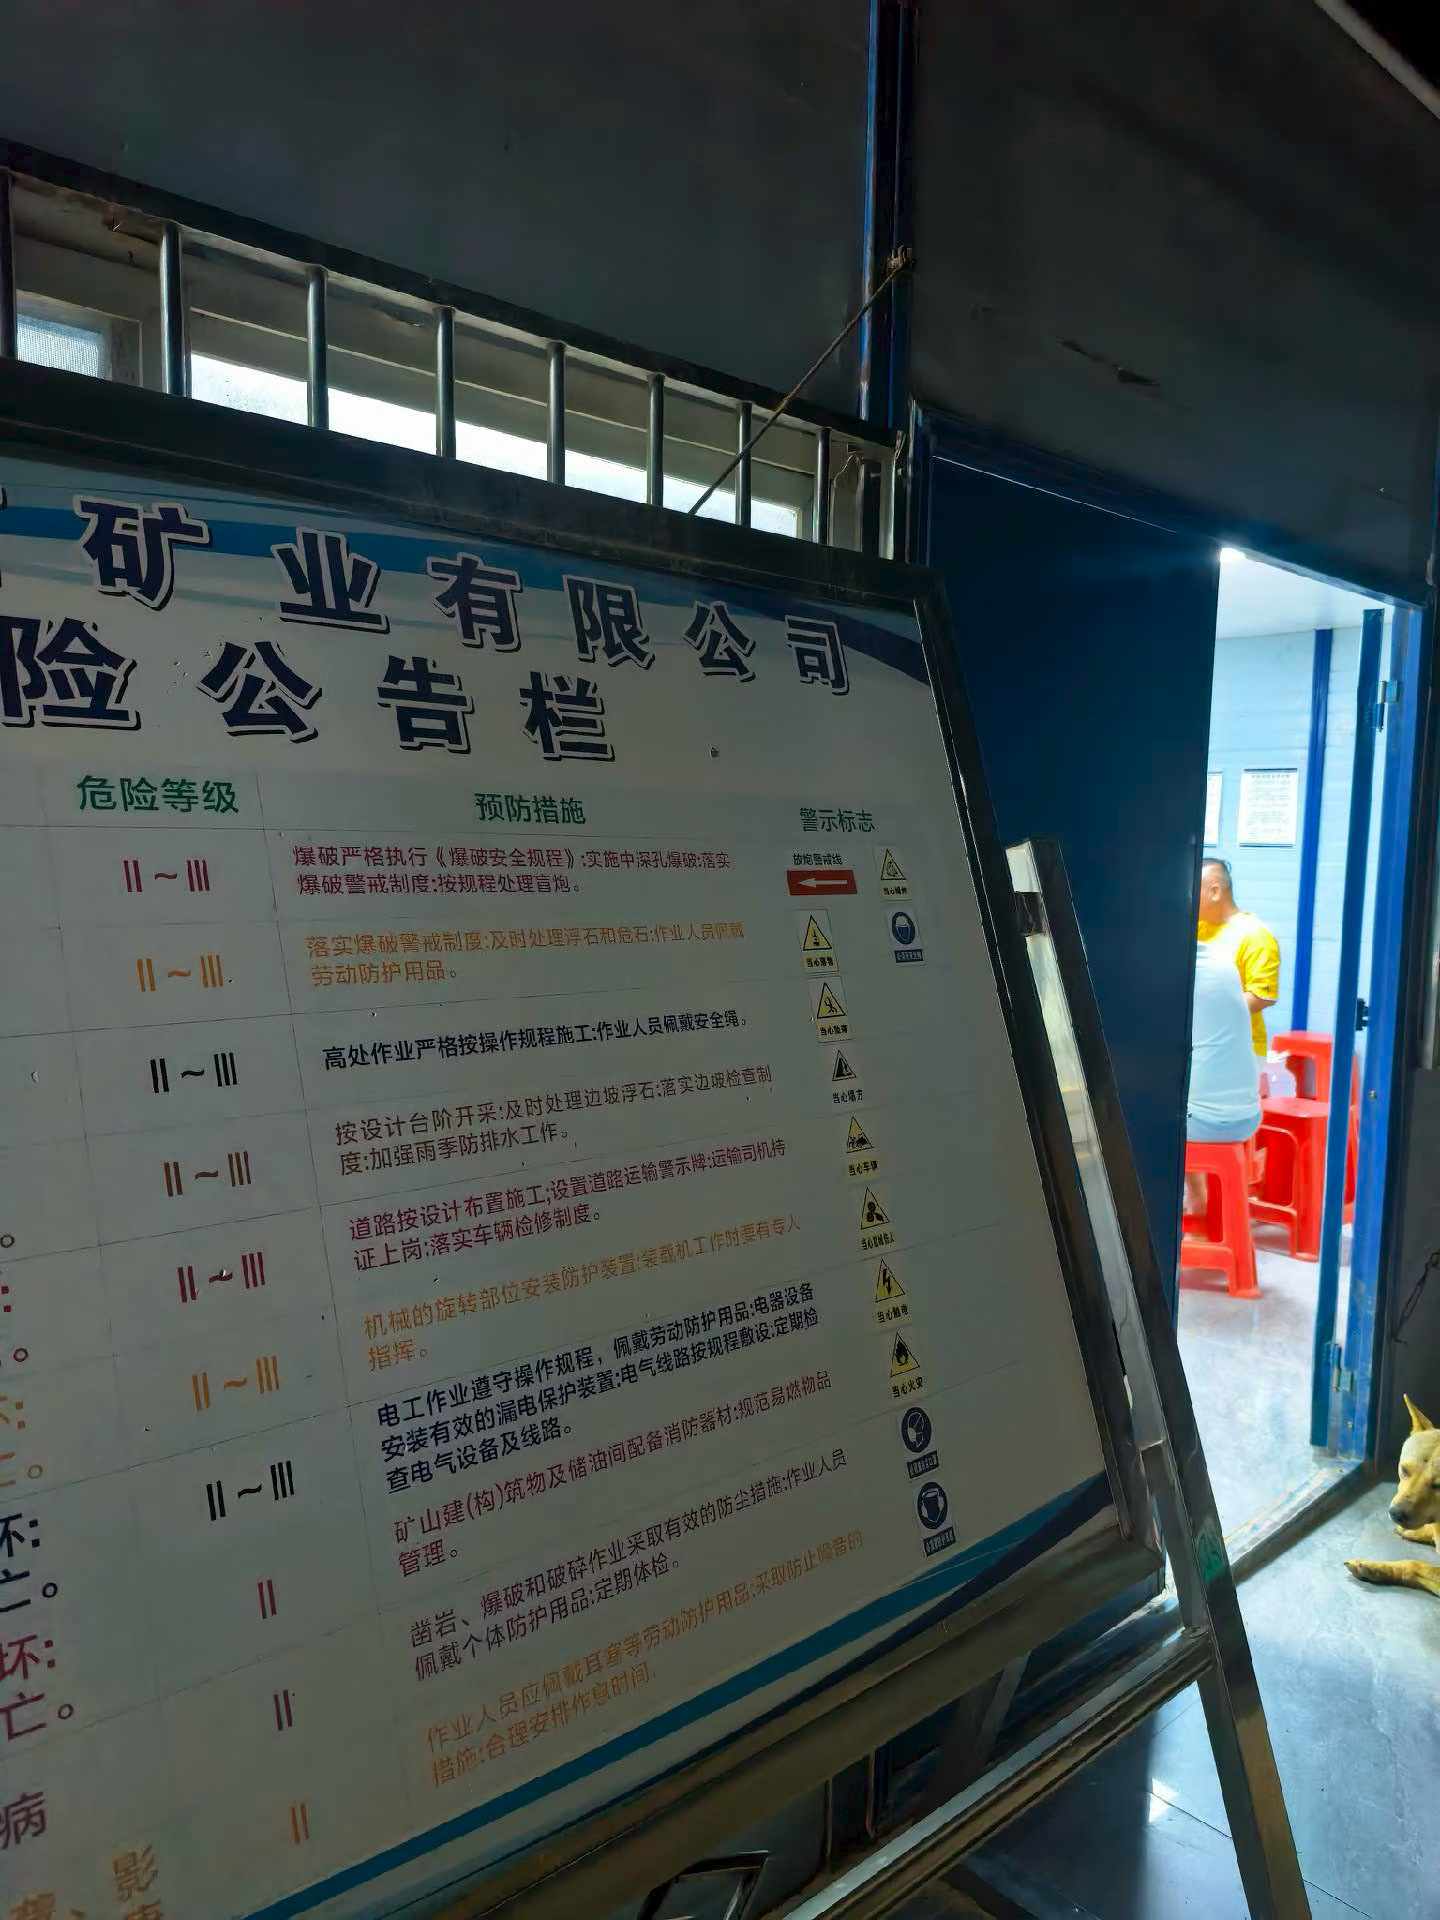 矿业有限公司
险公告栏
危险等级 预防措施 警示标志
II～III 爆破严格执行《爆破安全规程》;实施中深孔爆破;落实
爆破警戒制度;按规程处理盲炮。
放炮警戒线
II～III 落实爆破警戒制度;及时处理浮石和危石;作业人员佩戴
劳动防护用品。
当心落物
II～III 高处作业严格按操作规程施工;作业人员佩戴安全绳。
当心坠落
II～III 按设计台阶开采;及时处理边坡浮石;落实边坡检查制
度;加强雨季防排水工作。
当心塌方
II～III 道路按设计布置施工;设置道路运输警示牌;运输司机持
证上岗;落实车辆检修制度。
当心车辆
II～III 机械的旋转部位安装防护装置;装载机工作时要有专人
指挥。
当心机械伤人
II～III 电工作业遵守操作规程，佩戴劳动防护用品;电器设备
安装有效的漏电保护装置;电气线路按规程敷设;定期检
查电气设备及线路。
当心触电
II 矿山建(构)筑物及储油间配备消防器材;规范易燃物品
管理。
当心火灾
II 凿岩、爆破和破碎作业采取有效的防尘措施;作业人员
佩戴个体防护用品;定期体检。
II 作业人员应佩戴耳塞等劳动防护用品;采取防止噪音的
措施;合理安排作息时间.
坏:
亡。
坏:
亡。
病
影